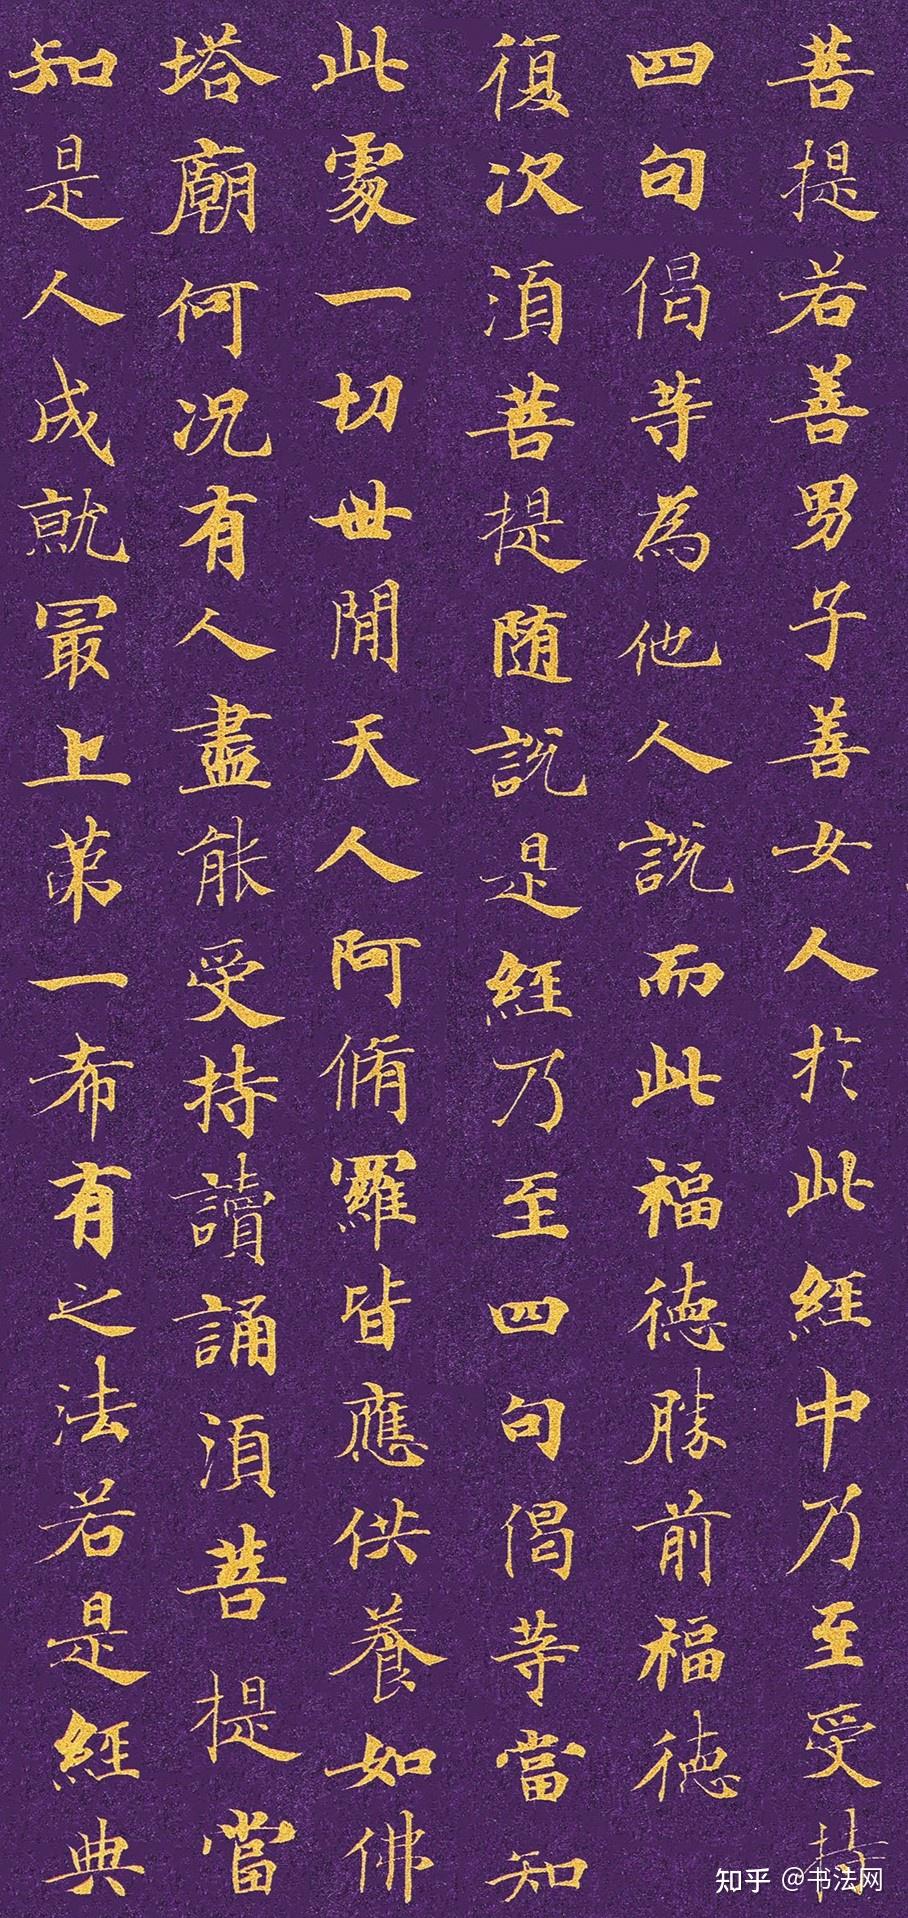 菩提若善男子善女人於此經中乃至受持
四句偈等為他人說而此福德勝前福德
復次須菩提随說是經乃至四句偈等當知
此處一切世間天人阿脩羅皆應供養如佛
塔廟何況有人盡能受持讀誦須菩提當
知是人成就最上第一希有之法若是經典
知乎 @书法网